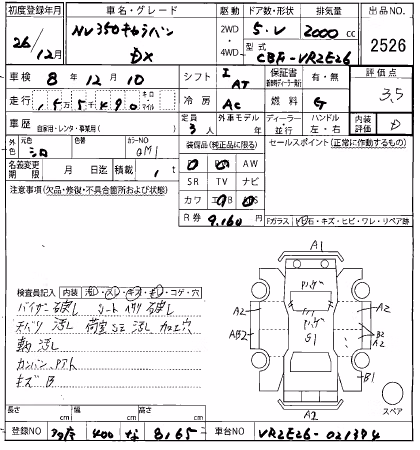 初度登録年月 車名・グレード 駆動 ドア数・形状 排気量 出品NO.
26/12月 NV350キャラバン DX 2WD 4WD 5.V 2000cc 2526
型式 CBF-VR2E26
車検 8年12月10 シフト I AT 保証書 有・無 評価点 3.5
走行 155490 キロ・マイル 冷房 AC 燃料 G
車歴 自家用・レンタ・事業用( ) 定員 3人 外車モデル 年 ディーラー・並行 ハンドル 左・右 内装 D
外色 元色 シロ 色替 カラーNO QM1 装備品(純正品に限る) セールスポイント(正常に作動するもの)
AW
名義変更期限 月 日迄 積載 1t SR TV ナビ
注意事項(欠品・修復・不具合箇所および状態) カワ
R券 9,160円 Fガラス キズ・ヒビ・ワレ・リペア跡
A1
検査員記入 内装 コゲ・穴
バイザー破レ シートヘタリ破レ
天バリ汚レ 荷室SE汚レ加工穴
A2 A2
AB2 S1 B2 A2
カンバンアト
キズB B1
スペア
長さ cm 幅 cm 高さ cm A2
登録NO 400 な 8165 車台NO VR2E26-021394